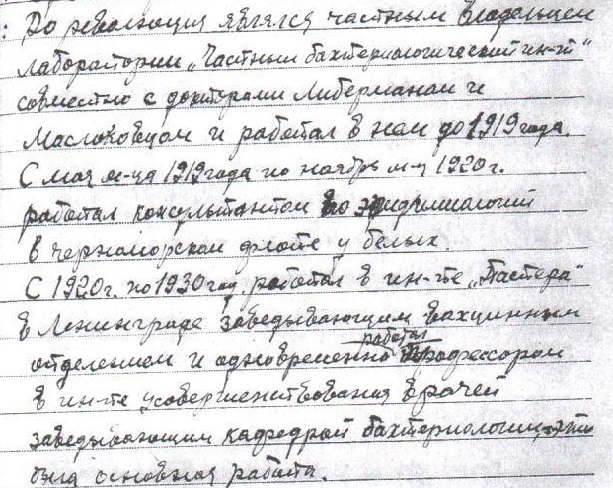 : До революции являлся частным владельцем
лаборатории „Частный бактериологический ин-т“
совместно с докторами Либерманом и
Маслоковцом и работал в нем до 1919 года.
С мая м-ца 1919 года по ноябрь м-ц 1920 г.
работал консультантом по эпидемиологии
в черноморском флоте у белых.
С 1920 г. по 1930 год работал в ин-те „Пастера“
в Ленинграде заведывающим вакцинным
отделением и одновременно работал профессором
в ин-те усовершенствования врачей
заведывающим кафедрой бактериологии, это
была основная работа.